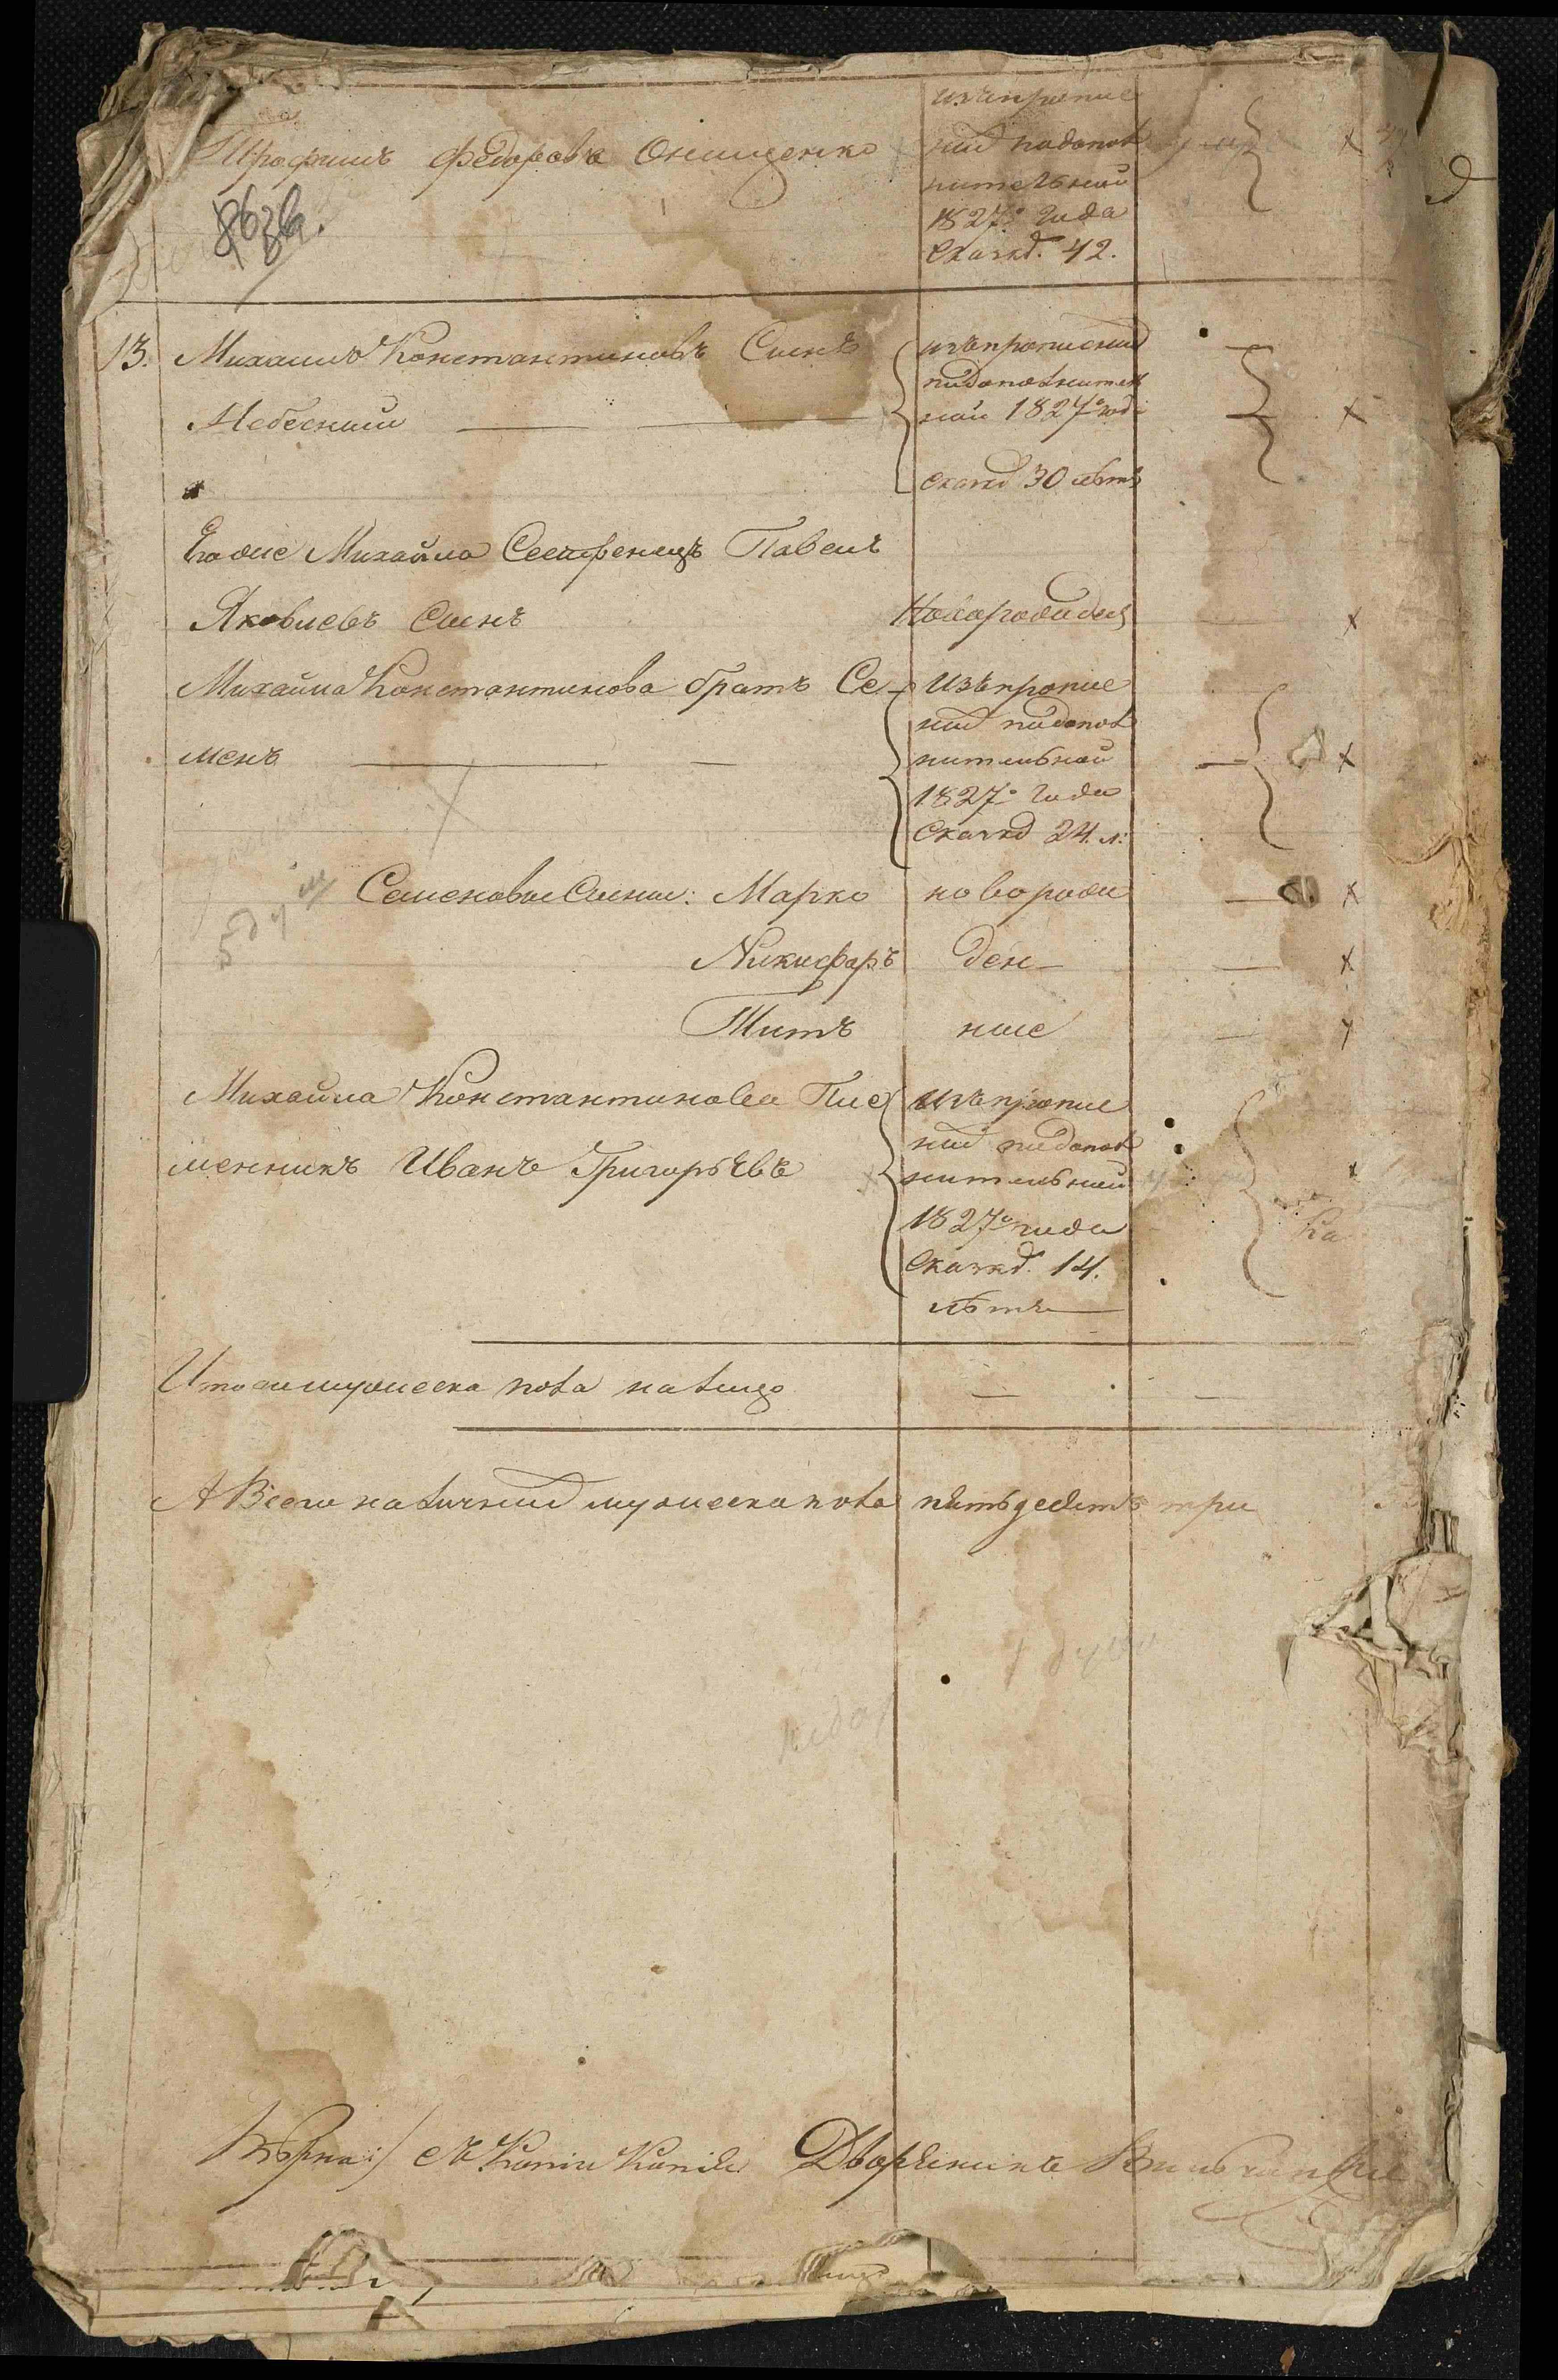 Трофимъ Федоровъ Онищенко
изъпрописе
ной подопол
нительной
1827го Года
Сказкѣ. 42.
13. Михаило Константиновъ Сынъ
Небесный
изъпрописной
подополнитель
ной 1827го годе
сказкѣ 30 лѣтъ
Егоже Михайла Сестренецъ Павелъ
Яковлевъ Сынъ Новорожденъ
Михайла Константинова братъ Се
менъ
Изъпрописе
ной подопол
нительной
1827го Года
Сказкѣ 24. л:
5 душ
Семеновы Сыны: Марко новорож
Никифоръ ден
Титъ ные
Михайла Константинова Пле
менникъ Иванъ Григорьевъ
изъпрописе
ной подопол
нительной
1827го года
Сказкѣ. 14.
лѣтъ
Итого мужеска пола налицо
А Всего наличной мужеска пола пятьдесятъ три
1 душа
Вѣрна:) съ Копіи Копія Дворянинъ